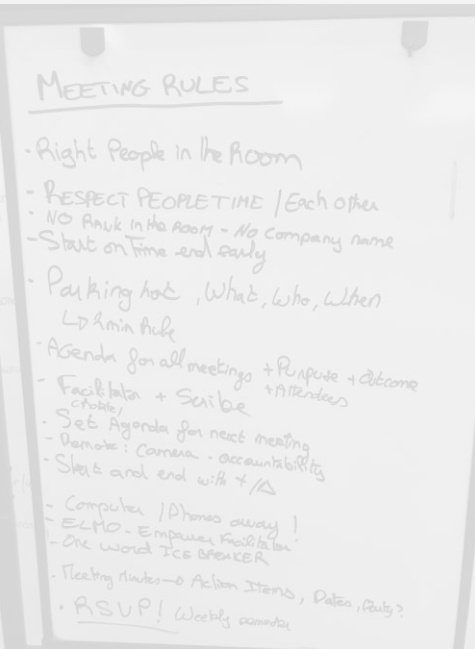 MEETING RULES
- Right People in the Room
- RESPECT PEOPLE TIME / Each other
- NO RANK IN the ROOM - No Company name
- Start on Time end early
- Parking Lot, What, Who, When
↳ 2 min Rule
- Agenda for all meetings + Purpose + Outcome
+ Attendees
- Facilitator + Scribe
(Rotate)
- Set Agenda for next meeting
- Remote: Camera - accountability
- Start and end with + /Δ
- Computer / Phones away!
- ELMO - Empower Facilitator
- One Word ICE BREAKER
- Meeting Minutes → Action Items, Dates,
- RSVP! Weekly reminder